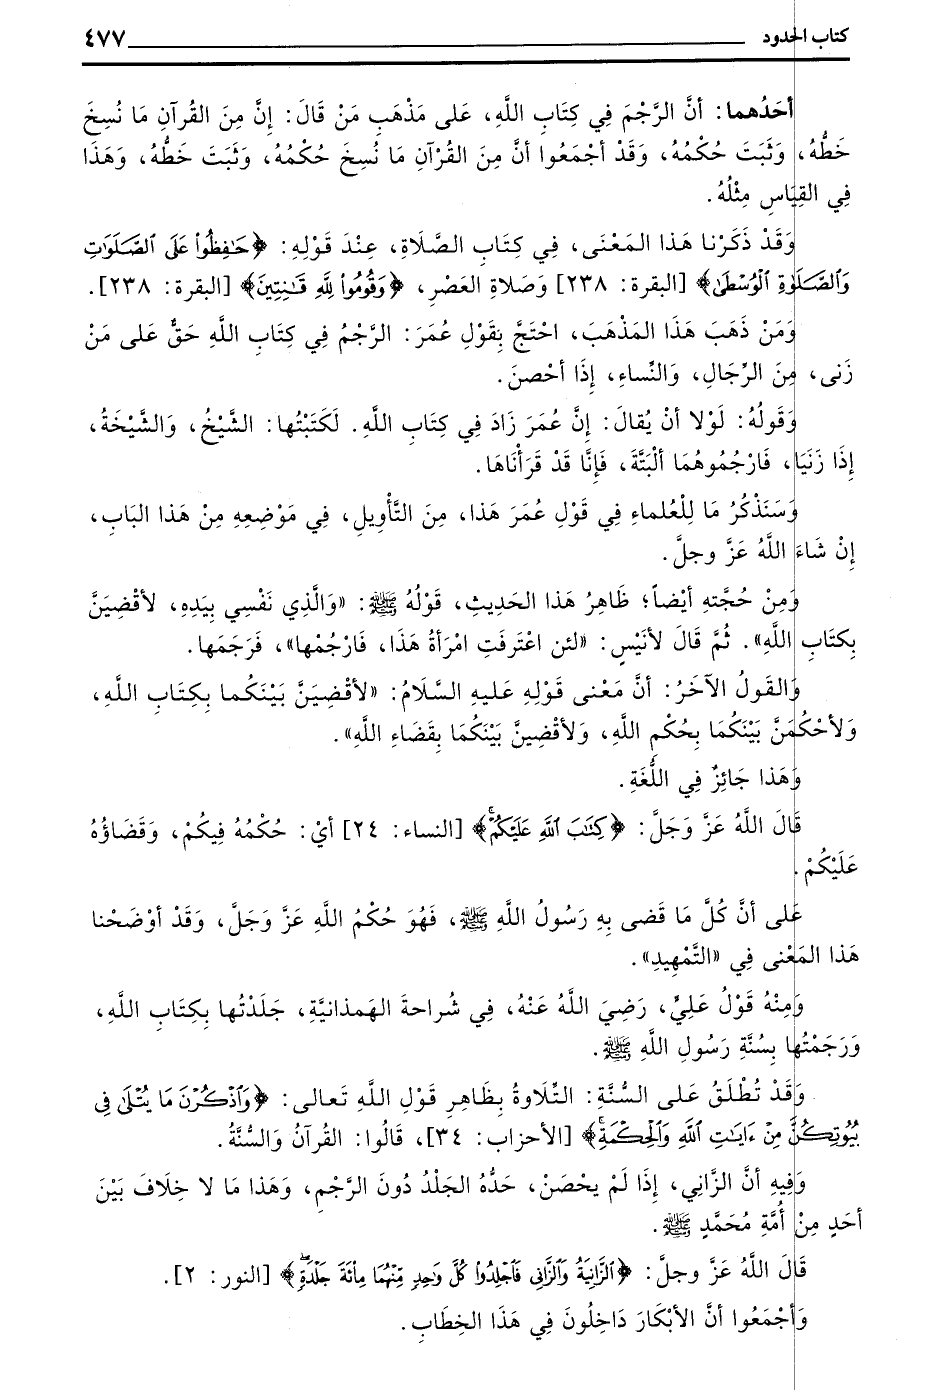 كتاب الحدود ٤٧٧
أحَدُهما: أنَّ الرَّجْمَ فِي كِتَابِ اللَّهِ، عَلى مَذْهَبِ مَنْ قَالَ: إِنَّ مِنَ القُرآنِ مَا نُسِخَ
خَطُّهُ، وَثَبَتَ حُكْمُهُ، وَقَدْ أجْمَعُوا أنَّ مِنَ القُرْآنِ مَا نُسِخَ حُكْمُهُ، وَثَبَتَ خَطُّهُ، وَهَذَا
فِي القِيَاسِ مِثْلُهُ.
وَقَدْ ذَكَرْنا هَذَا المَعْنَى، فِي كِتَابِ الصَّلَاةِ، عِنْدَ قَوْلِهِ: ﴿حَٰفِظُواْ عَلَى ٱلصَّلَوَٰتِ
وَٱلصَّلَوٰةِ ٱلْوُسْطَىٰ﴾ [البقرة: ٢٣٨] وَصَلاةِ العَصْرِ، ﴿وَقُومُواْ لِلَّهِ قَٰنِتِينَ﴾ [البقرة: ٢٣٨].
وَمَنْ ذَهَبَ هَذَا المَذْهَبَ، احْتَجَّ بِقَوْلِ عُمَرَ: الرَّجْمُ فِي كِتَابِ اللَّهِ حَقٌّ عَلى مَنْ
زَنى، مِنَ الرِّجَالِ، وَالنِّساءِ، إِذَا أحْصنَ.
وَقَولُهُ: لَوْلا أنْ يُقالَ: إِنَّ عُمَرَ زَادَ فِي كِتَابِ اللَّهِ. لَكَتَبْتُها: الشَّيْخُ، وَالشَّيْخَةُ،
إِذَا زَنَيَا، فَارْجُمُوهُمَا ألْبَتَّةَ، فَإِنَّا قَدْ قَرَأْنَاهَا.
وَسَنَذْكُرُ مَا لِلْعُلماءِ فِي قَوْلِ عُمَرَ هَذا، مِنَ التَّأْوِيلِ، فِي مَوْضِعِهِ مِنْ هَذا البَابِ،
إِنْ شَاءَ اللَّهُ عَزَّ وجلَّ.
وَمِنْ حُجَّتهِ أيْضاً؛ ظَاهِرُ هَذا الحَدِيثِ، قَوْلُهُ ﷺ: «وَالَّذِي نَفْسِي بِيَدِهِ، لأقْضِيَنَّ
بِكتَابِ اللَّهِ». ثُمَّ قَالَ لأنَيْسٍ: «لئن اعْتَرفَتِ امْرَأةُ هَذَا، فَارْجُمْها»، فَرَجَمَها.
وَالقَولُ الآخَرُ: أنَّ مَعْنى قَوْلِهِ عَليهِ السَّلَامُ: «لأقْضِيَنَّ بَيْنَكُما بِكِتَابِ اللَّهِ،
وَلأحْكُمَنَّ بَيْنَكُمَا بِحُكْمِ اللَّهِ، وَلأقْضِيَنَّ بَيْنَكُمَا بِقَضَاءِ اللَّهِ».
وَهَذا جَائِزٌ فِي اللُّغَةِ.
قَالَ اللَّهُ عَزَّ وَجَلَّ: ﴿كِتَٰبَ ٱللَّهِ عَلَيْكُمْ﴾ [النساء: ٢٤] أيْ: حُكْمُهُ فِيكُمْ، وَقَضَاؤُهُ
عَلَيْكُمْ.
عَلى أنَّ كُلَّ مَا قَضى بِهِ رَسُولُ اللَّهِ ﷺ، فَهُوَ حُكْمُ اللَّهِ عَزَّ وَجَلَّ، وَقَدْ أوْضَحْنا
هَذا المَعْنى فِي «التَّمْهِيدِ».
وَمِنْهُ قَوْلُ عَلِيٍّ، رَضِيَ اللَّهُ عَنْهُ، فِي شُراحةَ الهَمذانيَّةِ، جَلَدْتُها بِكِتَابِ اللَّهِ،
وَرَجَمْتُها بِسُنَّةِ رَسُولِ اللَّهِ ﷺ.
وَقَدْ تُطْلَقُ عَلى السُّنَّةِ: التِّلاوةُ بِظَاهِرِ قَوْلِ اللَّهِ تَعالى: ﴿وَٱذْكُرْنَ مَا يُتْلَىٰ فِى
بُيُوتِكُنَّ مِنْ ءَايَٰتِ ٱللَّهِ وَٱلْحِكْمَةِ﴾ [الأحزاب: ٣٤]، قَالُوا: القُرآنُ وَالسُّنَّةُ.
وَفِيهِ أنَّ الزَّانِي، إِذَا لَمْ يحْصَنْ، حَدُّهُ الجَلْدُ دُونَ الرَّجْمِ، وَهَذا مَا لا خِلَافَ بَيْنَ
أحَدٍ مِنْ أُمَّةِ مُحَمَّدٍ ﷺ.
قَالَ اللَّهُ عَزَّ وجلَّ: ﴿ٱلزَّانِيَةُ وَٱلزَّانِى فَٱجْلِدُواْ كُلَّ وَٰحِدٍ مِّنْهُمَا مِاْئَةَ جَلْدَةٍ﴾ [النور: ٢].
وَأجْمَعُوا أنَّ الأبْكَارَ دَاخِلُونَ فِي هَذَا الخِطَابِ.